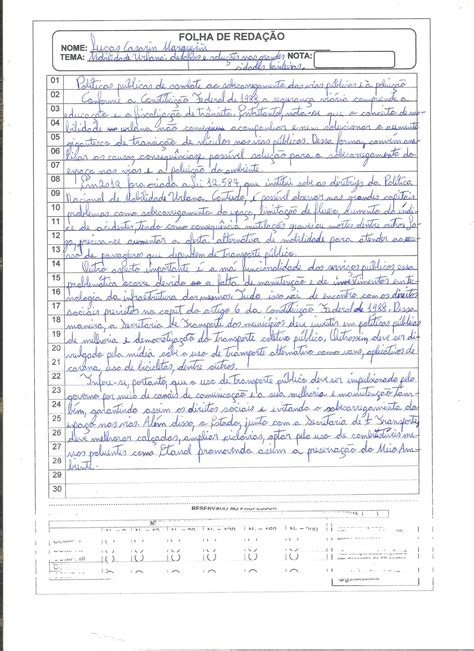 FOLHA DE REDAÇÃO
NOME: Lucas
TEMA: Mobilidade Urbana: desafios e soluções nas grandes NOTA:
cidades brasileiras
01 Políticas públicas de combate ao sobrecarregamento das vias públicas e à poluição
02 Conforme a Constituição Federal de 1988 a segurança viária compreende a
03 educação e a fiscalização de trânsito. Entretanto, nota-se que o conceito de mo-
04 bilidade urbana não consegue acompanhar e nem solucionar o aumento
05 gigantesco de transição de veículos nas vias públicas. Dessa forma, convém ana-
06 lisar as causas, consequências e possível solução para o sobrecarregamento do
07 espaço nas vias e a poluição do ambiente.
08 Em 2012 foi criada a Lei 12.587 que institui sob as diretrizes da Política
09 Nacional de Mobilidade Urbana. Contudo, é possível observar nas grandes capitais
10 problemas como sobrecarregamento do espaço, limitação de fluxo, aumento do índi-
11 ce de acidentes, tendo como consequência mutilações graves ou mortes dentre outros. Lo-
12 go, precisa-se aumentar a oferta alternativa de mobilidade para atender ao
13 de passageiros que dependem de Transporte público.
14 Outro aspecto importante é a não funcionalidade dos serviços públicos, essa
15 problemática ocorre devido a falta de manutenção e de investimentos em tec-
16 nologia da infraestrutura dos mesmos. Tudo isso vai de encontro com os direitos
17 sociais previstos no caput do artigo 6 da Constituição Federal de 1988. Dessa
18 maneira, a Secretaria de Transporte dos municípios deve investir em políticas públicas
19 de melhoria e democratização do transporte coletivo público. Outrossim deve ser di-
20 vulgado pela mídia sobre o uso de transporte alternativo como vans, aplicativos de
21 carona, uso de bicicletas, dentre outros.
22 Infere-se, portanto, que o uso de transporte público deve ser impulsionado pelo
23 governo por meio de canais de comunicação e a sua melhoria e manutenção tam-
24 bém, garantindo assim os direitos sociais e evitando o sobrecarregamento do
25 espaço nas vias. Além disso, o Estado, junto com a Secretaria de Transportes
26 deve melhorar calçadas, ampliar ciclovias, optar pelo uso de combustíveis me-
27 nos poluentes como Etanol promovendo assim a preservação do Meio Am-
28 biente.
29
30
RESERVADO AO PROFESSOR